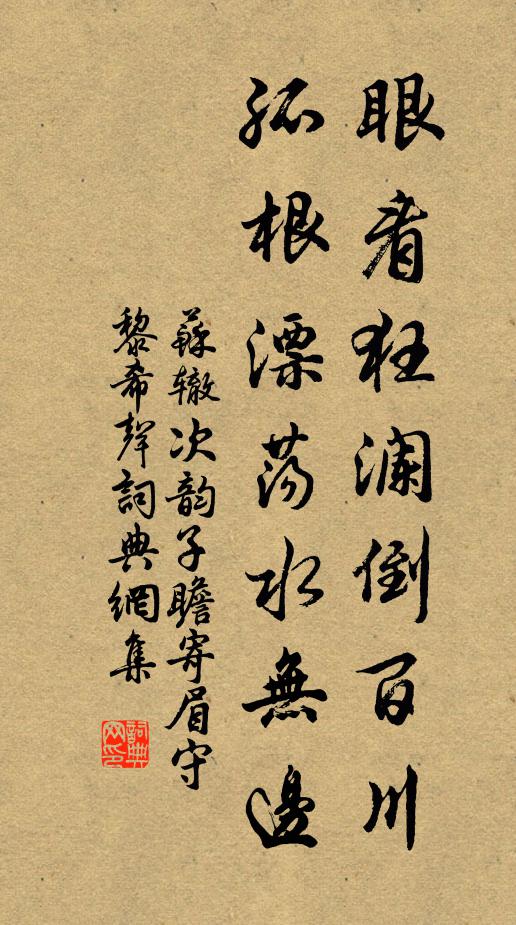 眼看狂澜倒百川
孤根漂荡水無邊
蘇辙次韵子瞻寄眉守
黎希聲詞典網集
詞典网印